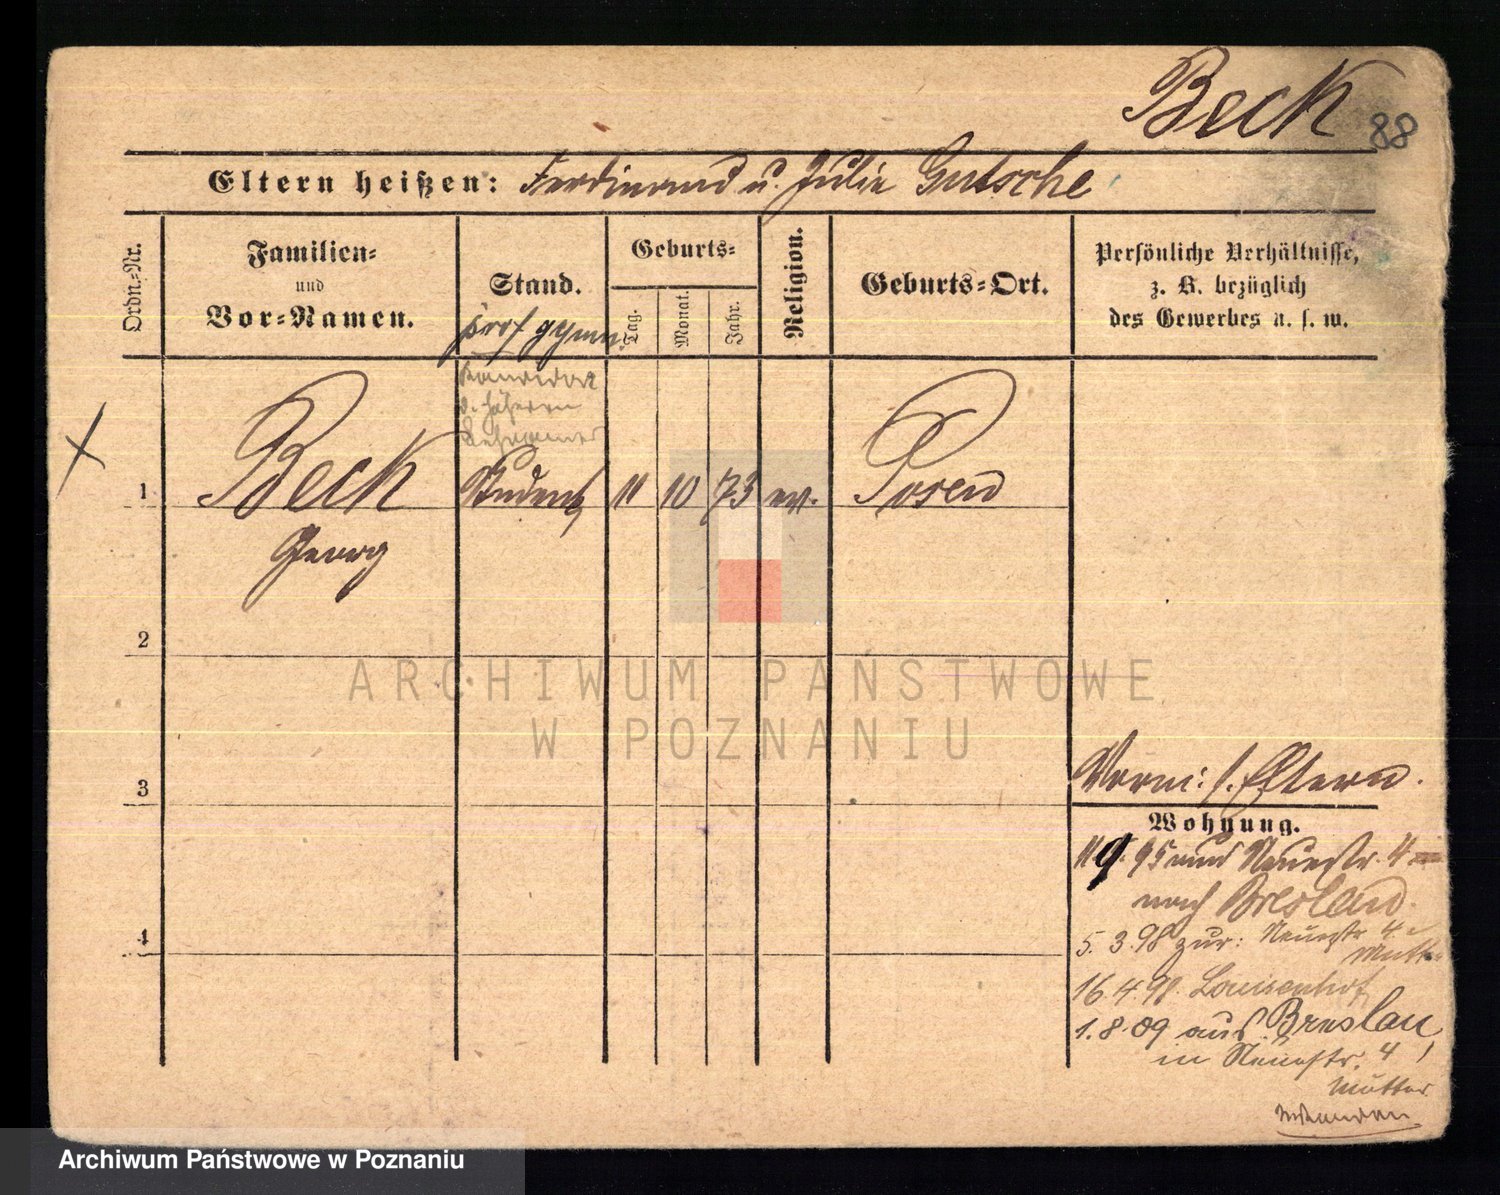 Beck
88
Eltern heißen: Ferdinand u. Julie Gutsche
Ordn.=Nr.
Familien=
und
Vor=Namen.
Stand.
prof gymn.
Geburts=
Tag.
Monat.
Jahr.
Religion.
Geburts=Ort.
Persönliche Verhältnisse,
z. B. bezüglich
des Gewerbes u. s. w.
Kandidat
d. höheren
1 Beck Student 11 10 73 ev. Posen
Georg
2
3
4
Vorm: s. Eltern.
Wohnung.
95 Neuestr. 4
nach Breslau.
5. 3. 98 zur: Neuestr 4
Mutter
16. 4. 98. Louisenhof
1. 8. 09 aus Breslau
in Neuestr. 4
Mutter
ARCHIWUM PAŃSTWOWE
W POZNANIU
Archiwum Państwowe w Poznaniu